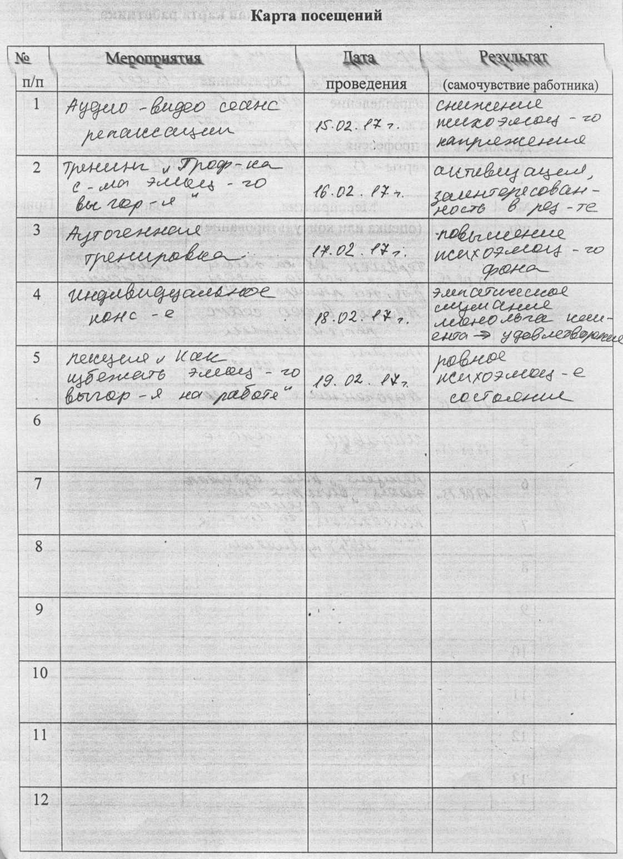 Карта посещений
№ п/п Мероприятия Дата проведения Результат (самочувствие работника)
1 Аудио-видео сеанс релаксации 15.02.17г. снижение психоэмоц-го напряжения
2 Тренинг „Проф-ка с-ма эмоц-го выгор-я" 16.02.17г. активизация, заинтересованность в рез-те
3 Аутогенная тренировка. 17.02.17г. повышение психоэмоц-го фона
4 Индивидуальное конс-е 18.02.17г. эмпатическое слушание монолога клиента → удовлетворение
5 лекция „Как избежать эмоц-го выгор-я на работе" 19.02.17г. ровное психоэмоц-е состояние
6
7
8
9
10
11
12